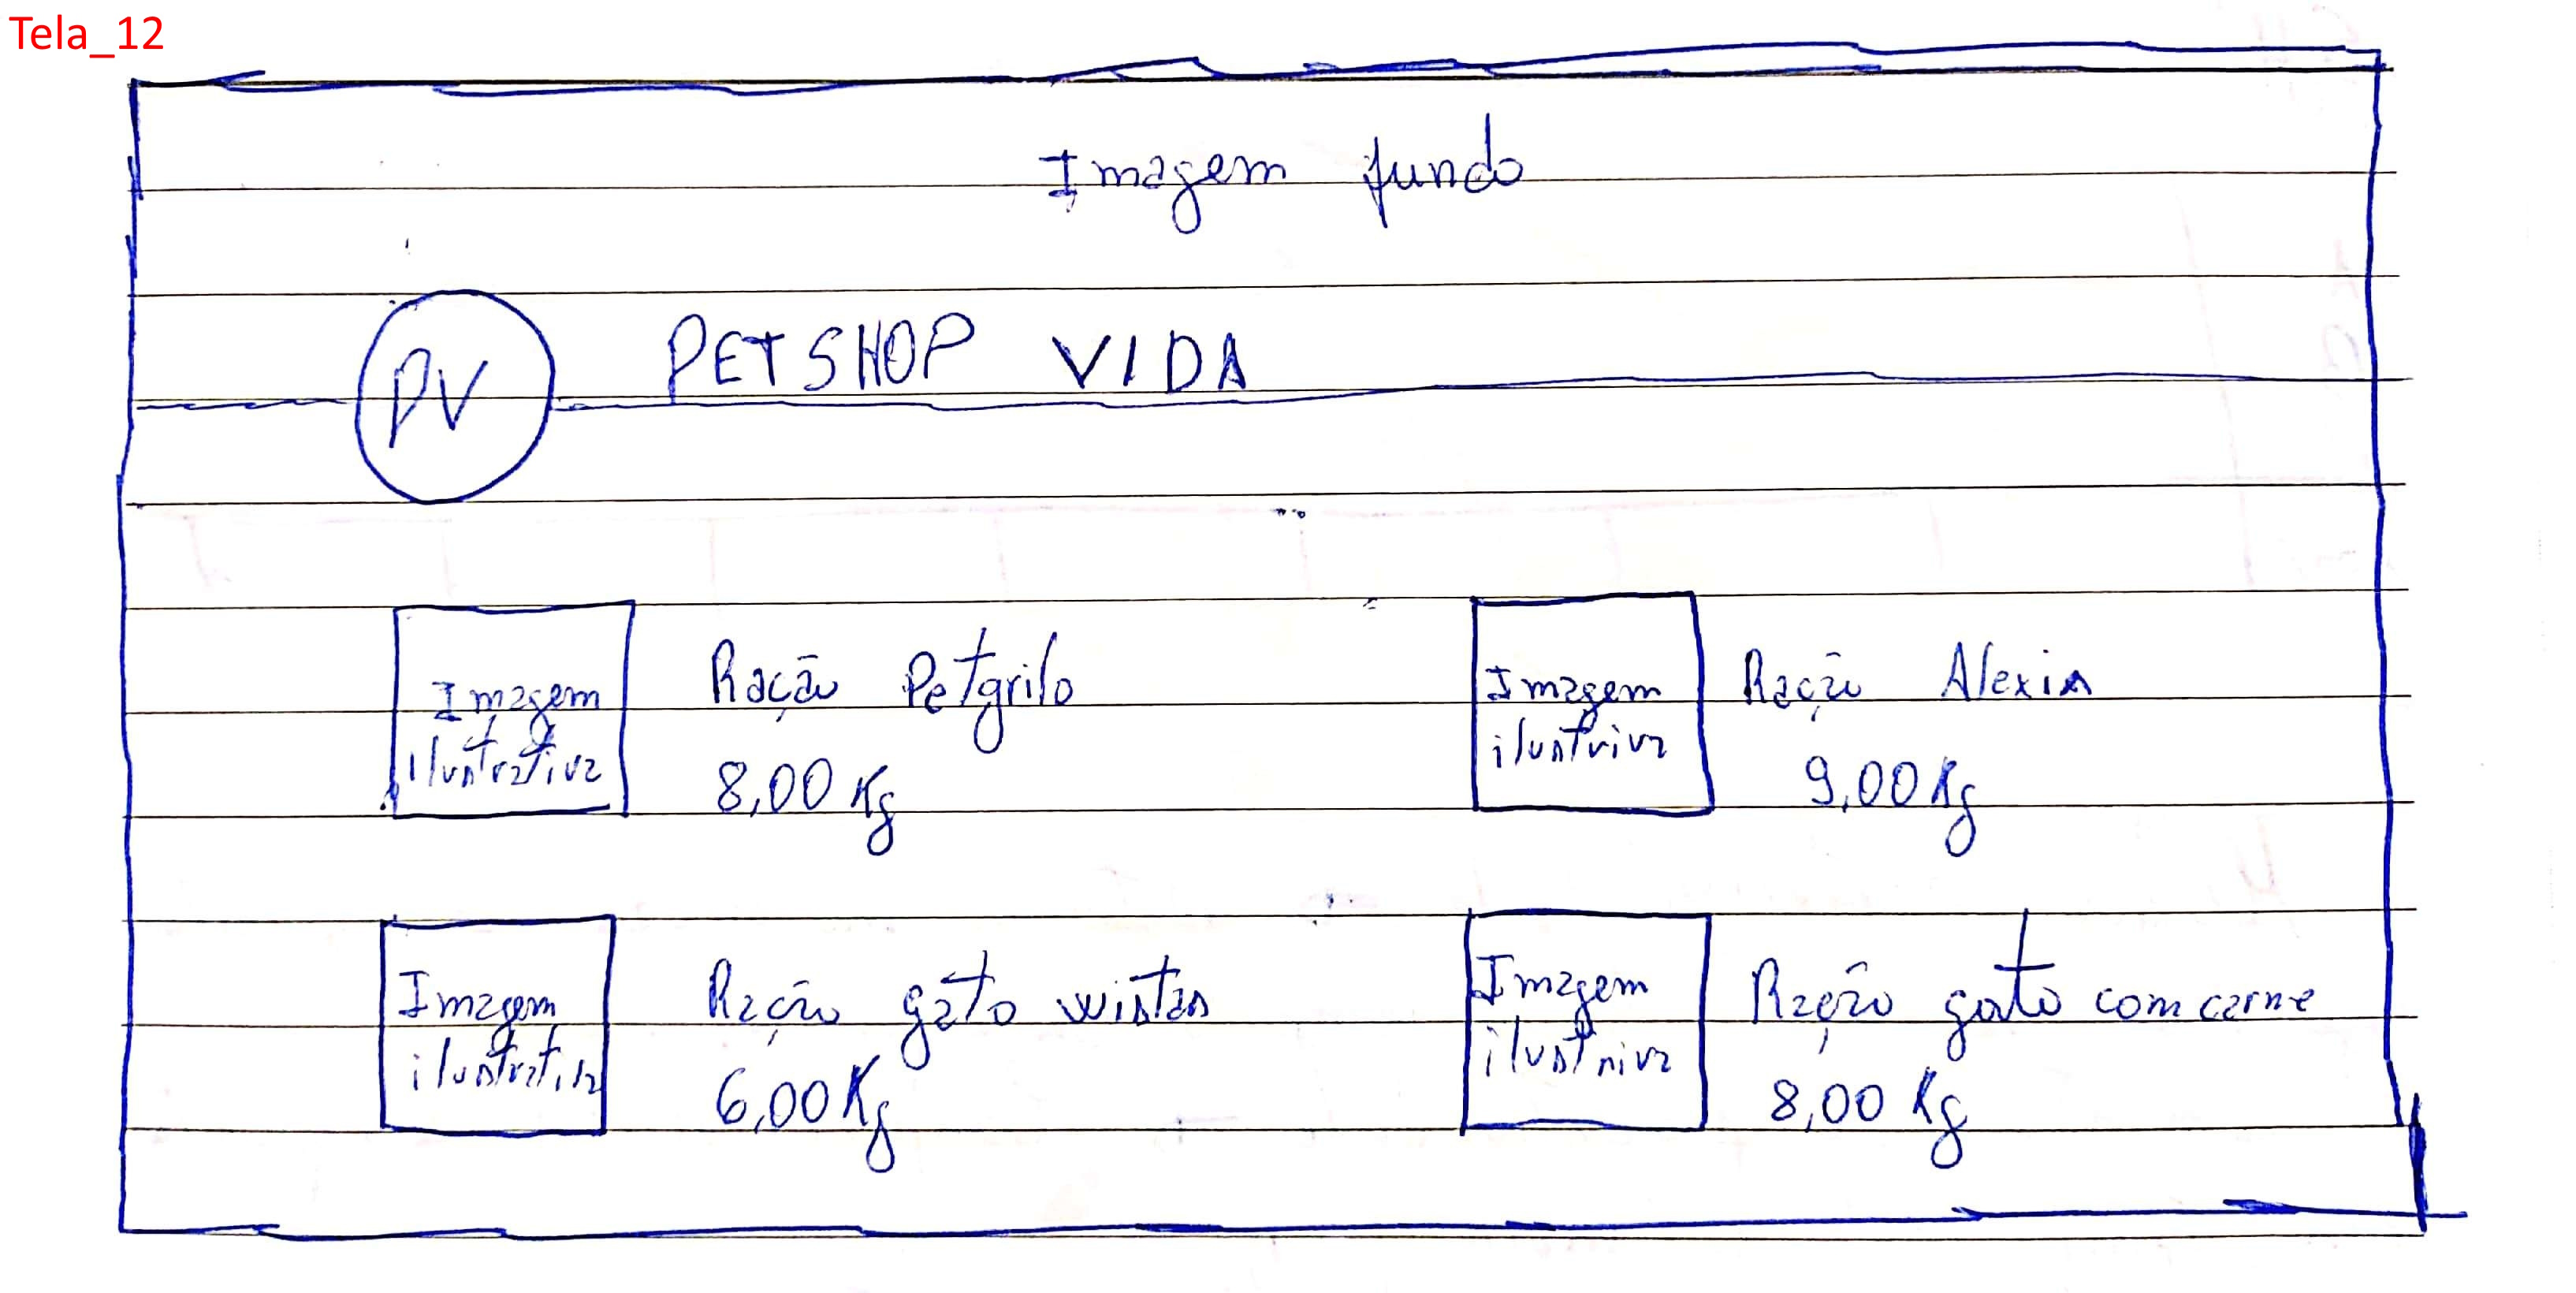 Tela_12
Imagem fundo
PV
PETSHOP VIDA
Imagem
ilustrativa
Ração Petgrilo
8,00 Kg
Imagem
ilustriva
Ração Alexia
9,00 Kg
Imagem
ilustrativa
Ração gato
6,00 Kg
Imagem
ilustriva
Ração gato com carne
8,00 Kg